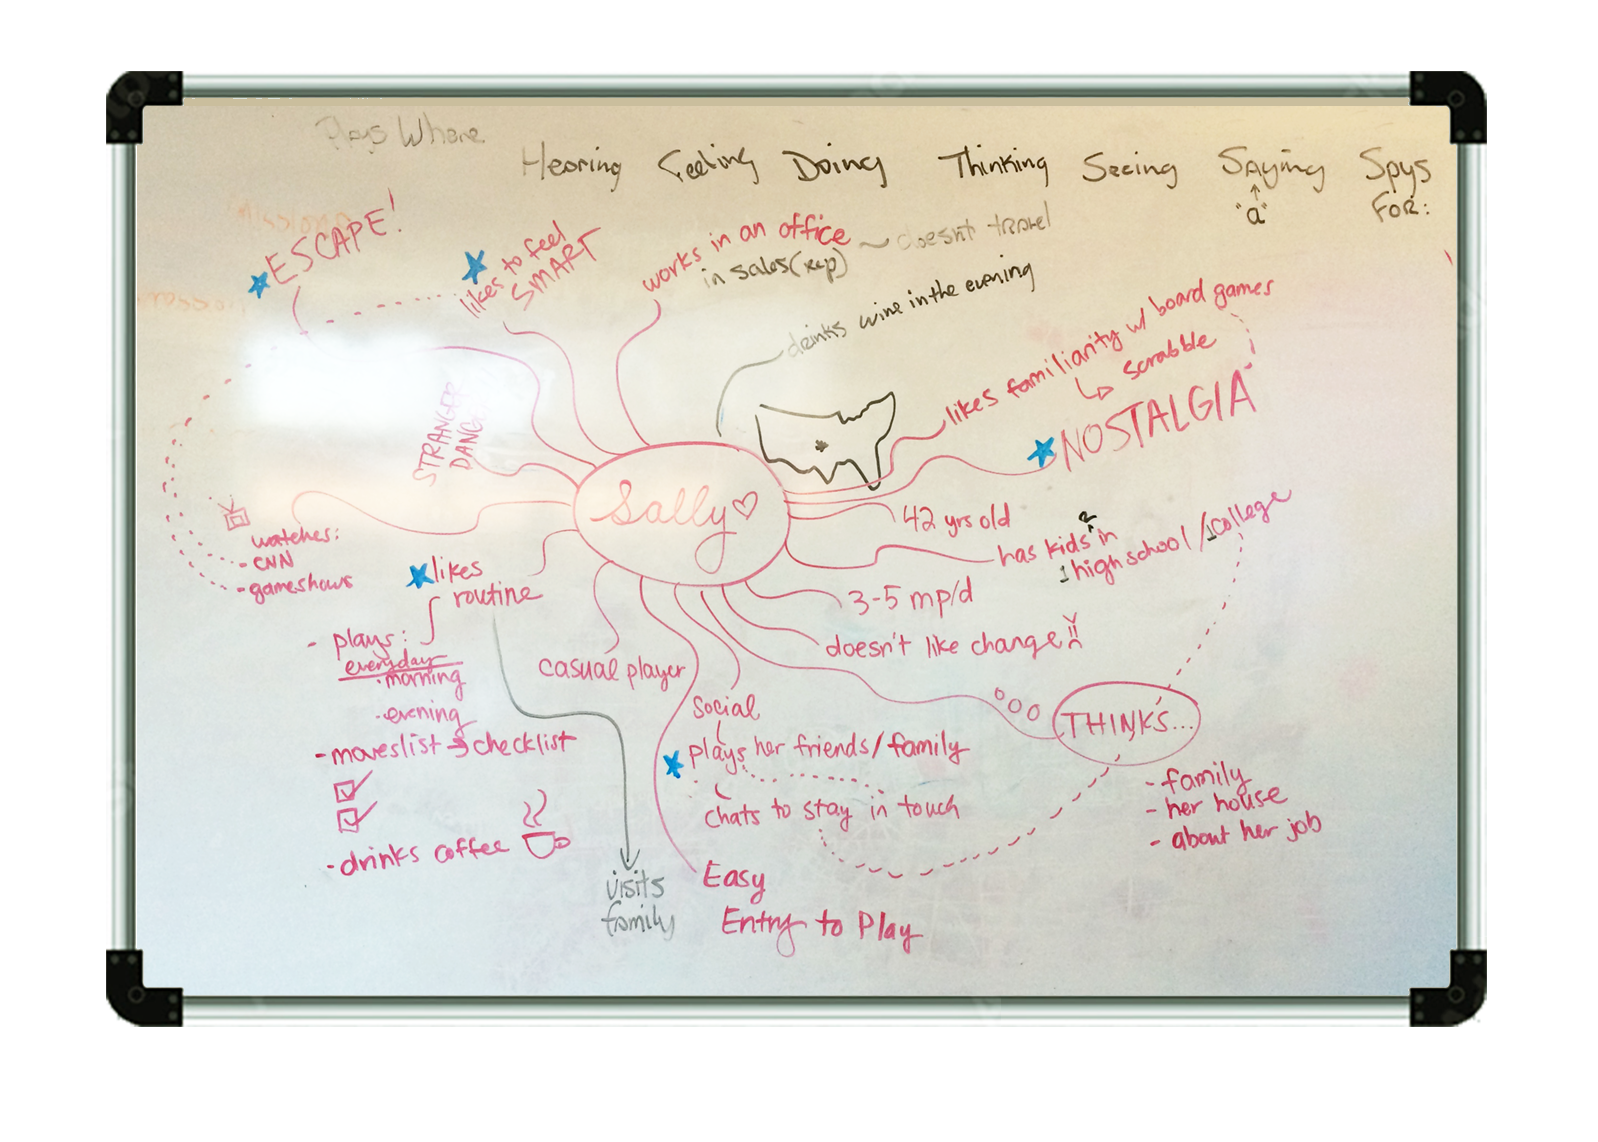 Plays Where
Hearing Feeling Doing Thinking Seeing Saying Spys
"a" FOR:
ESCAPE!
likes to feel
SMART
works in an office
in sales (rep)
doesn't travel
drinks wine in the evening
likes familiarity w/ board games
scrabble
NOSTALGIA
STRANGER
DANGER
Sally
42 yrs old
has kids 2 in
1 high school / 1 college
3-5 mp/d
doesn't like change
watches:
- CNN
- gameshows
likes
routine
- plays:
everyday
· morning
· evening
- moveslist → checklist
- drinks coffee
visits
family
casual player
Social
plays her friends/family
chats to stay in touch
Easy
Entry to Play
THINKS...
- family
- her house
- about her job